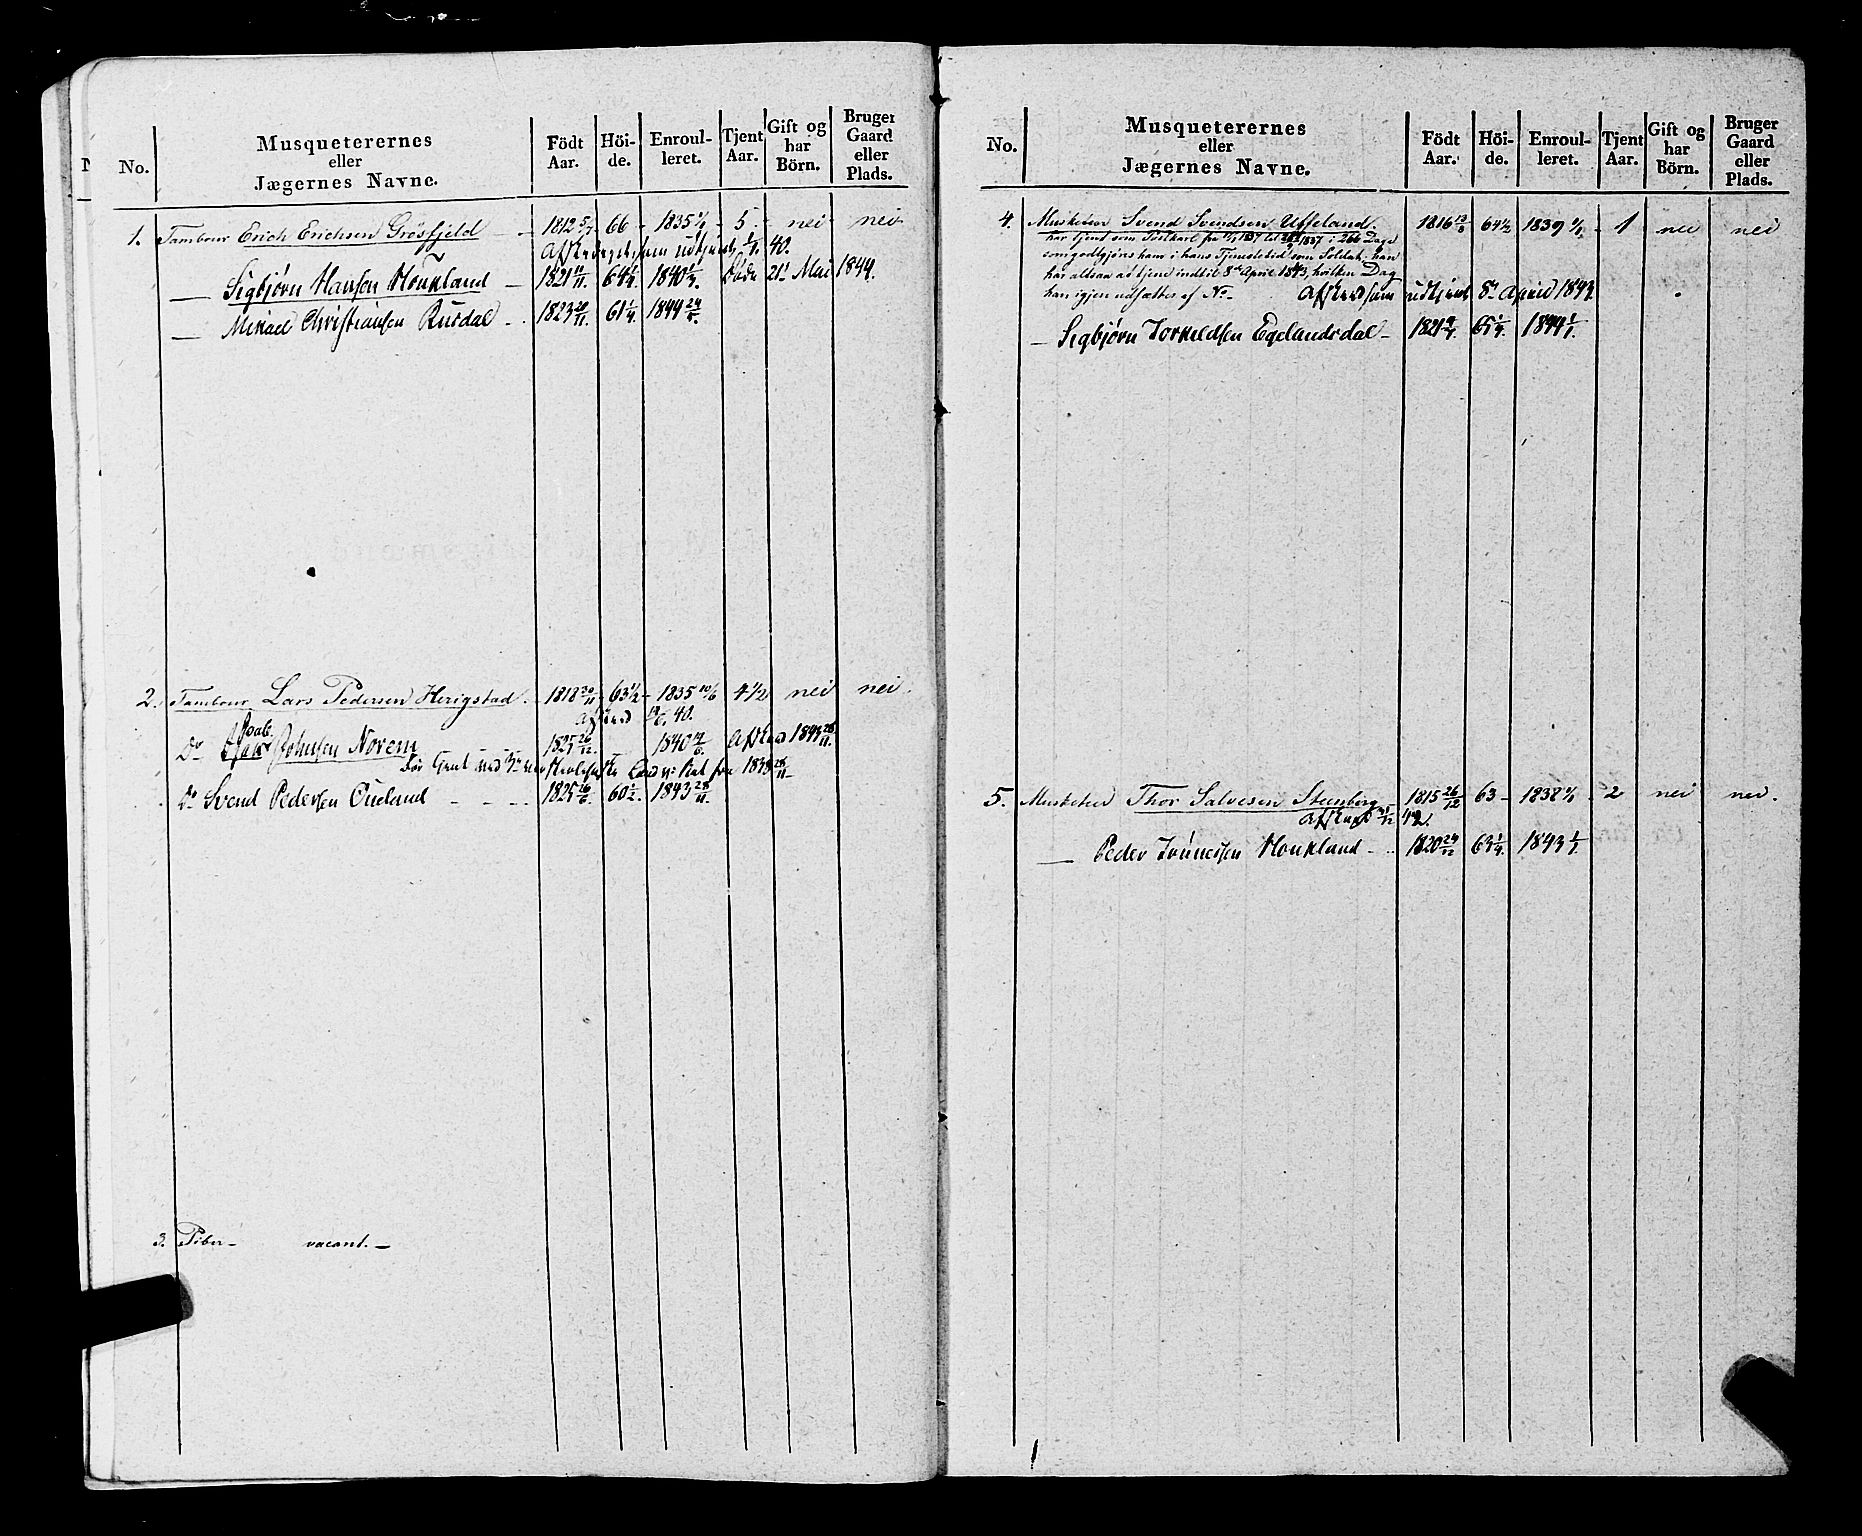 No.
Musqueterernes
eller
Jægernes Navne.
Födt Aar.
Höi-de.
Enroul-leret.
Tjent Aar.
Gift og har Börn.
Bruger Gaard eller Plads.
1. Tambour Erich Erichsen Grøsfjeld - 1812 5/7 66 - 1835 1/1 - 5 - nei nei
udtjent 1/1 40.
— Sigbjørn Hansen Houkland — 1821 11/11. 64 1/4 1840 1/4. Døde 21 Mai 1844.
— Mikael Christiansen Rusdal - 1823 20/11. 61 1/4. 1844 24/5.
2. Tambour Lars Pedersen Herigstad. 1818 20/11 63 1/2 - 1835 10/6 4 1/2 nei nei.
Afsked 19/6. 40.
Do Johnsen Novem 1825 26/12. 1840 19/6. Afsked 1843 28/11.
1838 28/11 -
Do Svend Pedersen Øueland - - - 1825 16/6. 60 1/2. 1843 28/11.
3. Piber - vacant. -
No.
Musqueterernes
eller
Jægernes Navne.
Födt Aar.
Höi-de.
Enroul-leret.
Tjent Aar.
Gift og har Börn.
Bruger Gaard eller Plads.
4. Musketeer Svend Svendsen Uffeland. 1816 19/6 64 1/2 1839 1/1. - 1 nei nei
har tjent som Postkarl fra 1837 til 1837 i 266 Dage
som godtgjøres ham i hans Tjenestetid som Soldat, han
har altsaa at tjene indtil 8de April 1843, hvilken Dag
han igjen udsættes af No - Afskediget som udtjent 8de April 1843.
— Sigbjørn Torkildsen Egelandsdal - 1821 9/7. 65 1/4. 1844 1/1.
5. Musketeer Thor Salvesen Steenberg 1815 26/12 63 - 1838 1/1 - 2 nei nei.
Afskeed 31/12 42.
— Peder Tønnessen Houkland - - 1820 24/12 63 1/4. 1843 1/1.